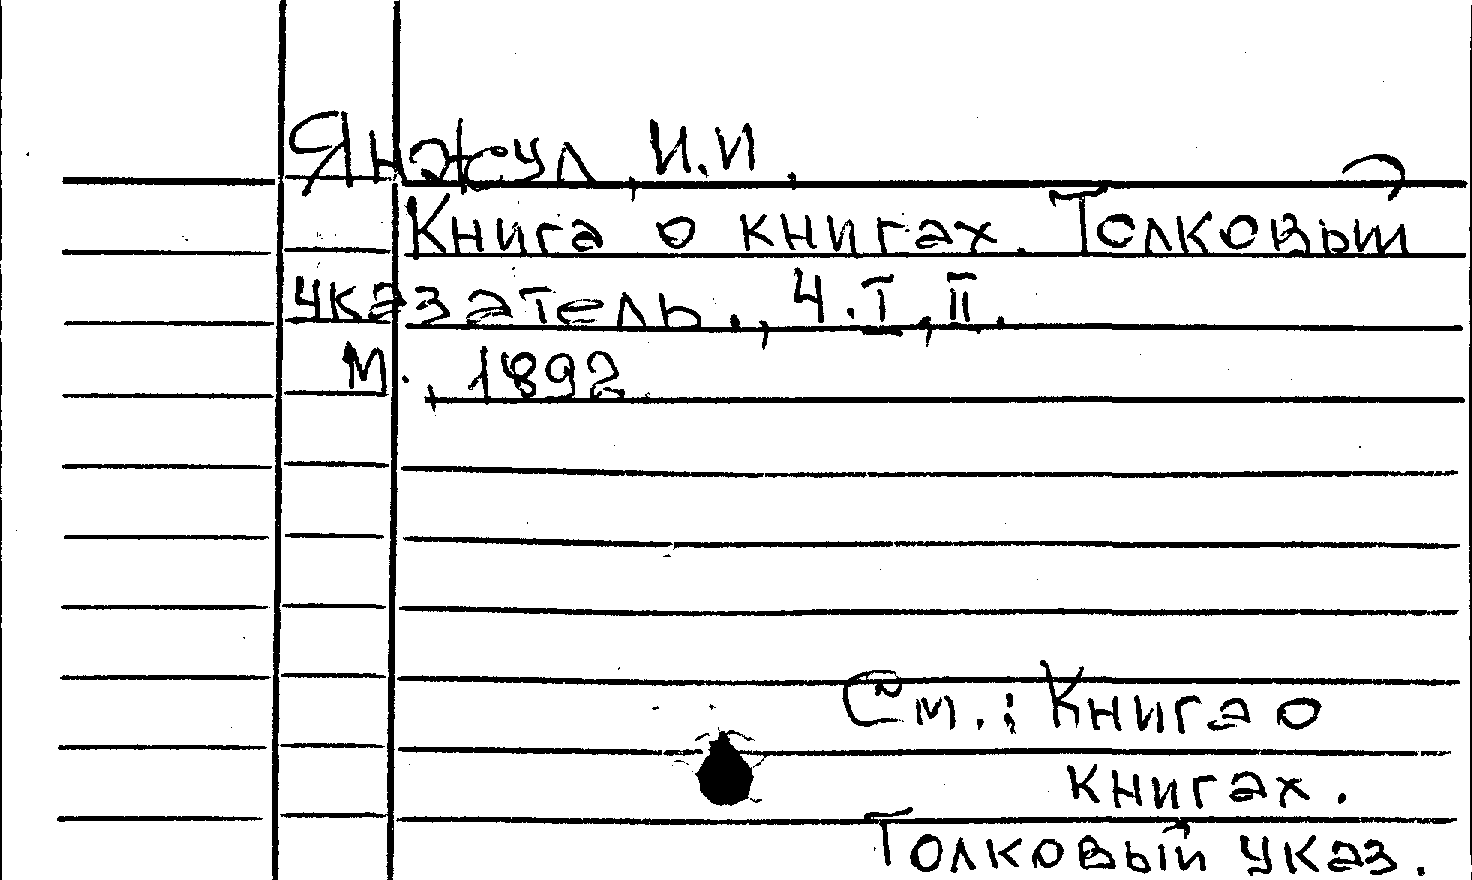 Янжул, И.И.
Книга о книгах. Толковый
указатель., Ч.I, II.
М., 1892
См.: Книга о
книгах.
Толковый указ.